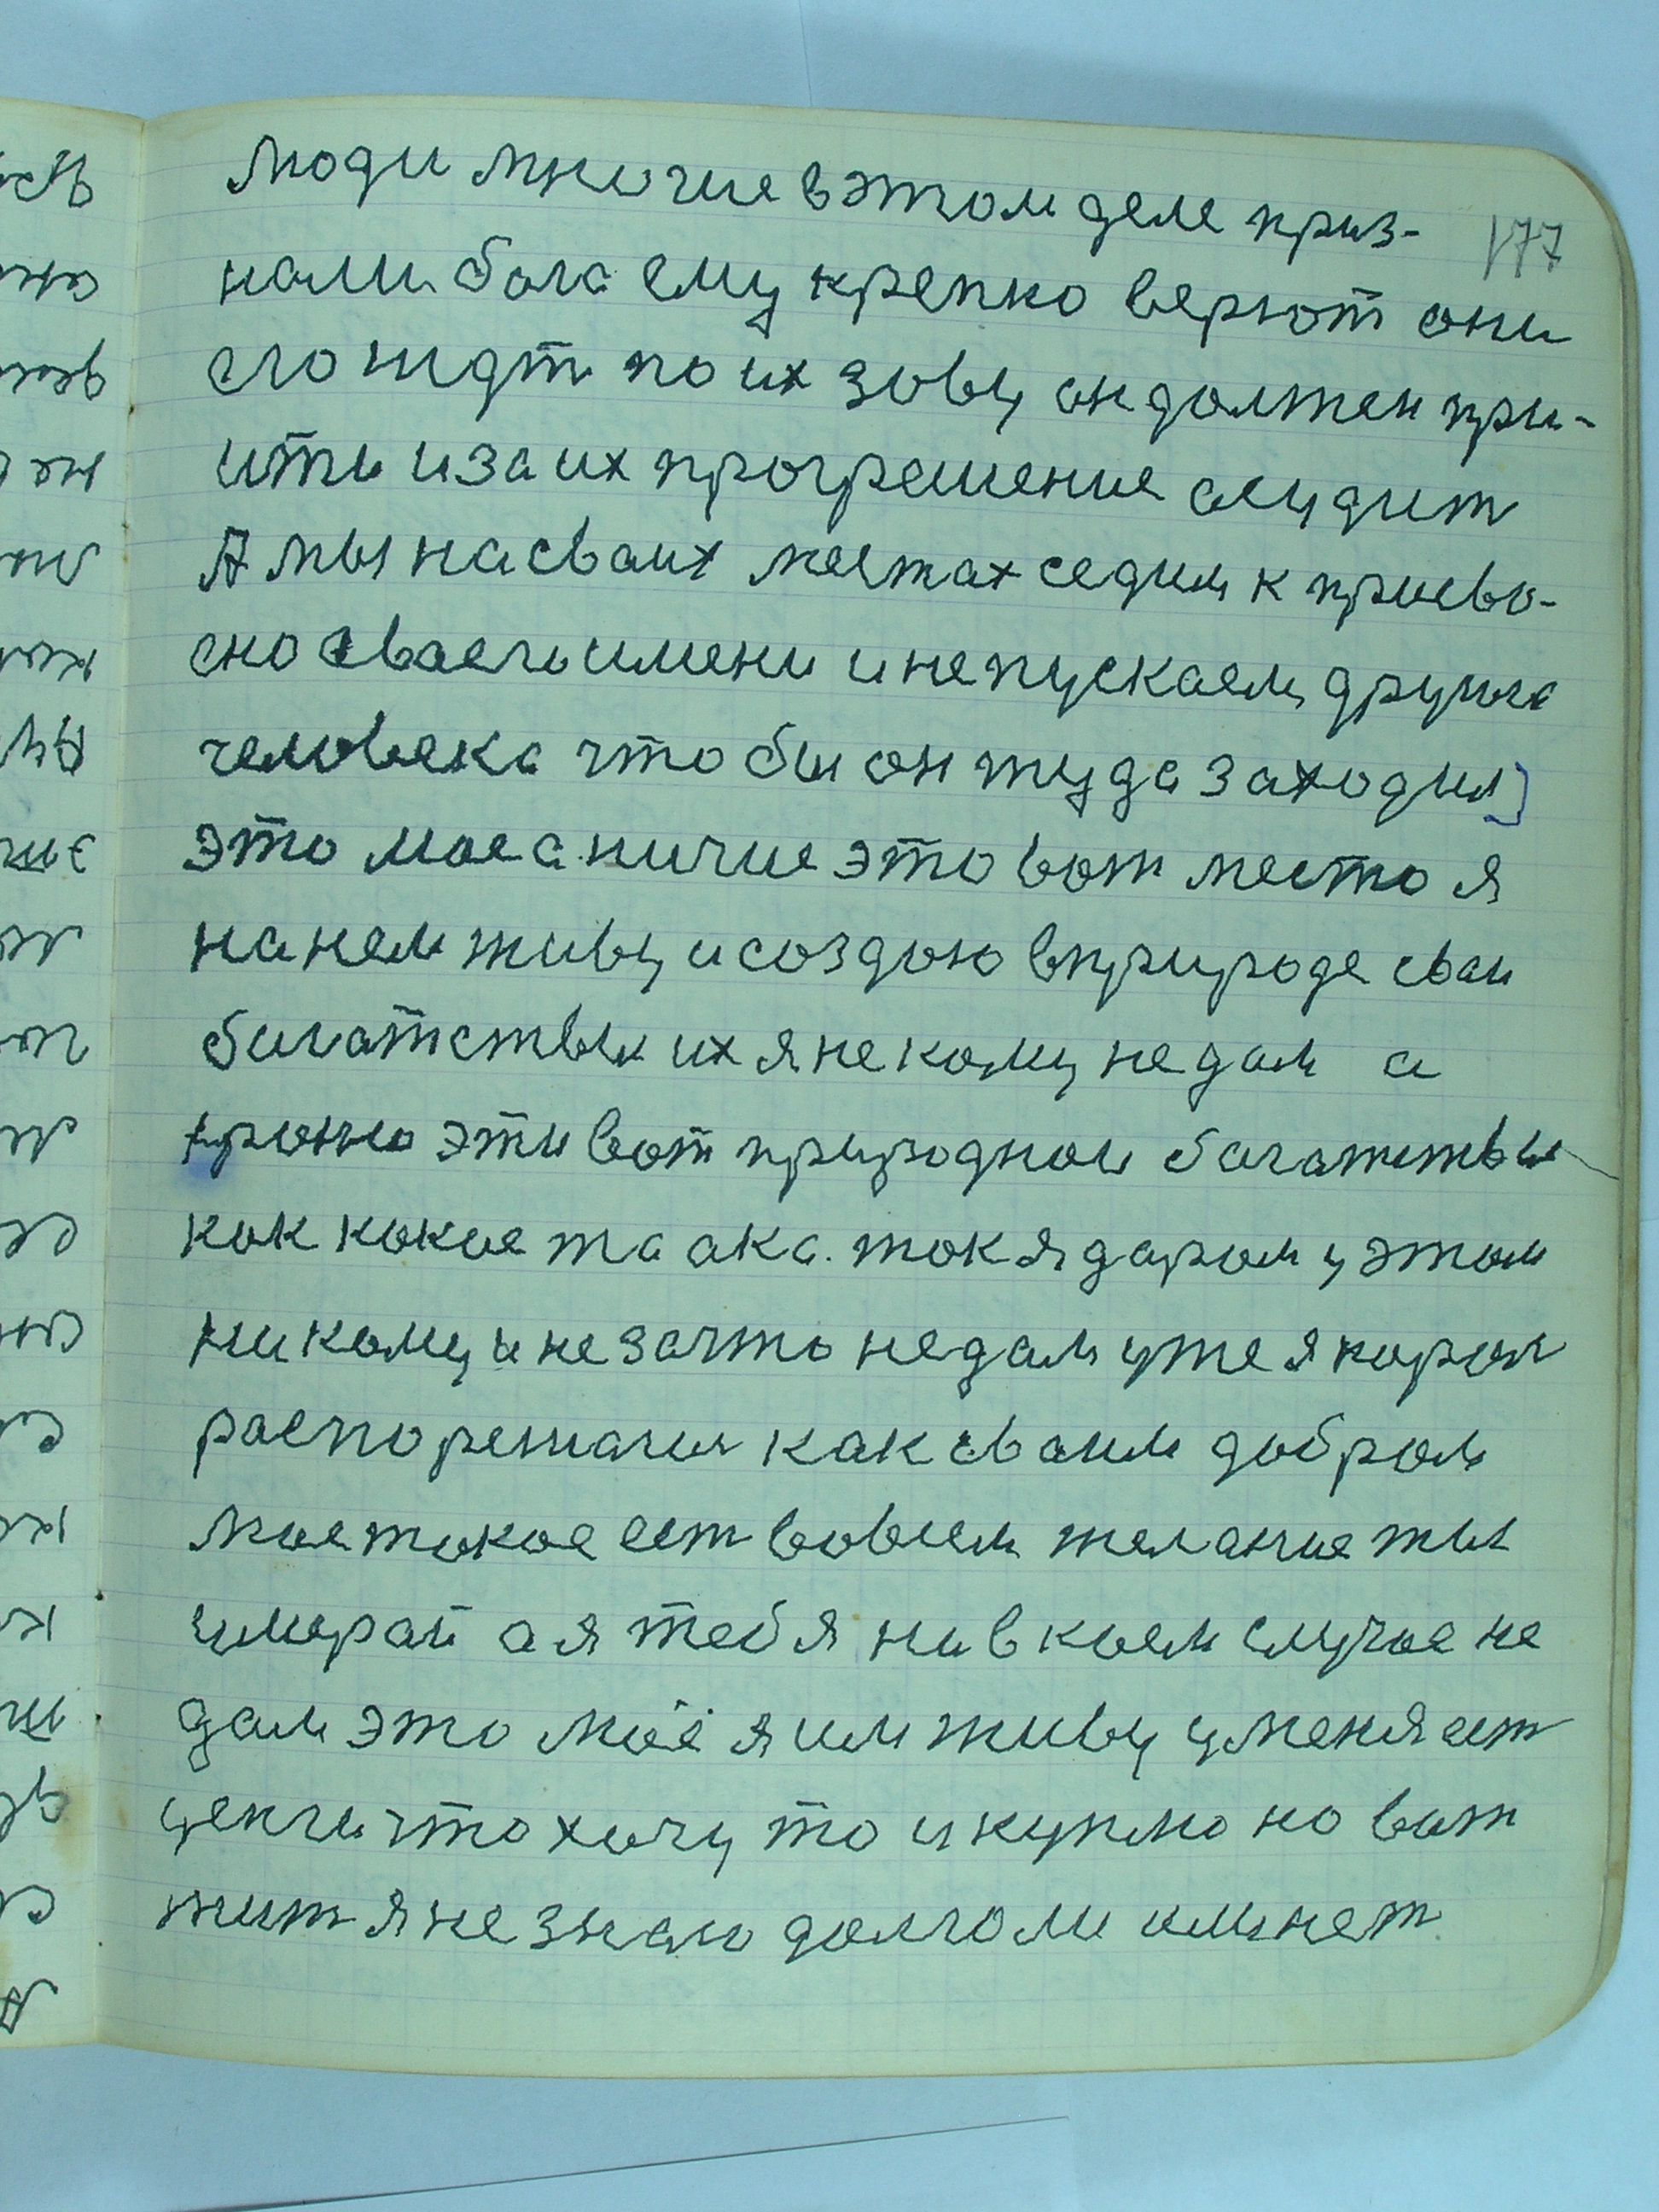 177
люди многие в этом деле приз-
нали бога ему крепко верют они
его ждт по их зову он должен при-
ити и за их прогрешение осудит
А мы на сваих местах седим к присво-
сно сваего имени и не пускаем друга
человека что бы он туда заходил]
это мое а ничие это вот место я
на нем живу и создою в природе сваи
богатствы их я не кому не дам а
храню эти вот природнои багатствы
как какое та ака. ток я даром у этом
ни кому и не за что не дам уже я
распорежаюсь как сваим добром
мое такое ест во всем желание ты
умерай а я тебя ни в коем случае не
дам это моё я им живу у меня ест
ценги что хочу то и куплю но вот
жит я не знаю долго ли или нет